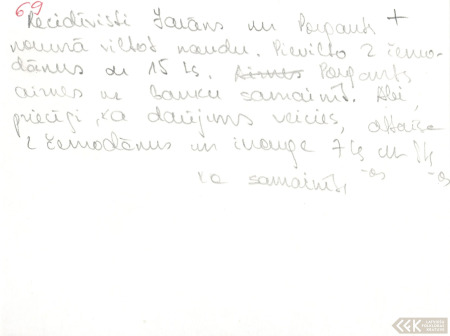 69
Recidīvisti Zarāns un Porgants +
nolemā viltot naudu. Pievilto 2 čemo-
dānus ar 15 Ls. Porgants
aiznes uz banku samainīt. Abi,
priecīgi, ka darījums veicies, attaisa
2 čemodānus un ierauga 7 Ls un 8 Ls
ka samainīts